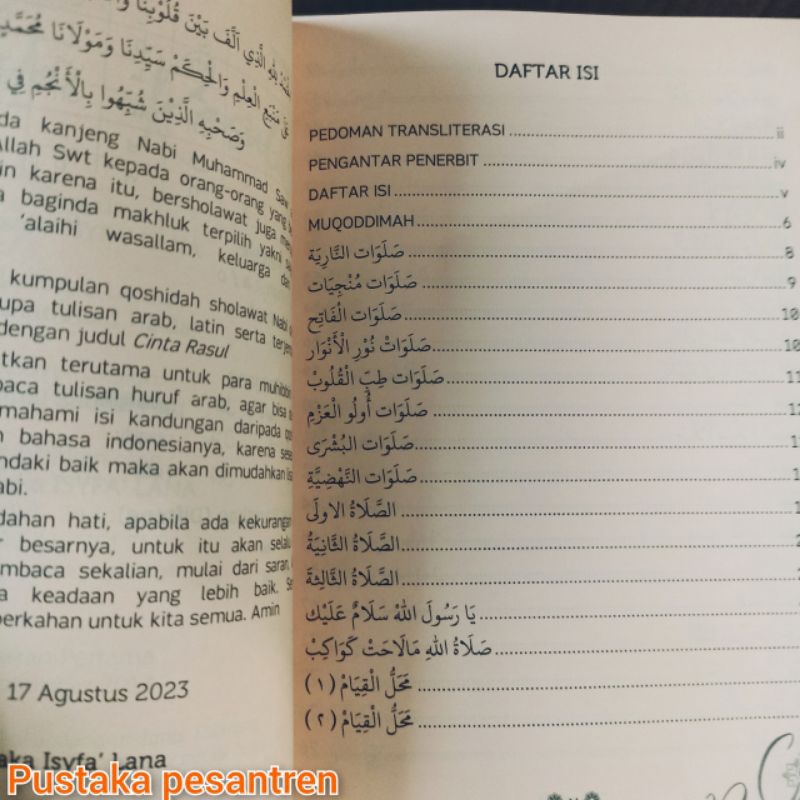 لِلّٰهِ الَّذِي اَلَّفَ بَيْنَ قُلُوْبِنَا
مَنْبَعِ الْعِلْمِ وَالْحِكَمْ سَيِّدِنَا وَمَوْلَانَا مُحَمَّدٍ
وَصَحْبِهِ الَّذِيْنَ شُبِّهُوا بِالْأَنْجُمِ فِي
kanjeng Nabi Muhammad Saw
Allah Swt kepada orang-orang yang
karena itu, bersholawat juga
baginda makhluk terpilih yakni
'alaihi wasallam, keluarga
kumpulan qoshidah sholawat Nabi
tulisan arab, latin serta
dengan judul Cinta Rasul
terutama untuk para
tulisan huruf arab, agar bisa
isi kandungan daripada
bahasa indonesianya, karena
baik maka akan dimudahkan
hati, apabila ada
besarnya, untuk itu akan
sekalian, mulai dari saran
keadaan yang lebih baik.
untuk kita semua. Amin
17 Agustus 2023
Isyfa' Lana
DAFTAR ISI
PEDOMAN TRANSLITERASI ii
PENGANTAR PENERBIT iv
DAFTAR ISI v
MUQODDIMAH 6
صَلَوَات النَّارِيَة 8
صَلَوَات مُنْجِيَات 9
صَلَوَات الْفَاتِح 10
صَلَوَاتْ نُوْرِ الْأَنْوَار 10
صَلَوَات طِبِّ الْقُلُوْبْ 11
صَلَوَات أُولُو الْعَزْمِ
صَلَوَات الْبُشْرَى
صَلَوَات النَّهْضِيَّةِ
الصَّلَاةُ الاولَى
الصَّلَاةُ الثَّانِيَةُ
الصَّلَاةُ الثَّالِثَةُ
يَا رَسُولَ اللهْ سَلَامٌ عَلَيْك
صَلَاةُ اللهِ مَالَاحَتْ كَوَاكِبْ
مَحَلُّ الْقِيَامْ (١)
مَحَلُّ الْقِيَامْ (٢)
Pustaka pesantren